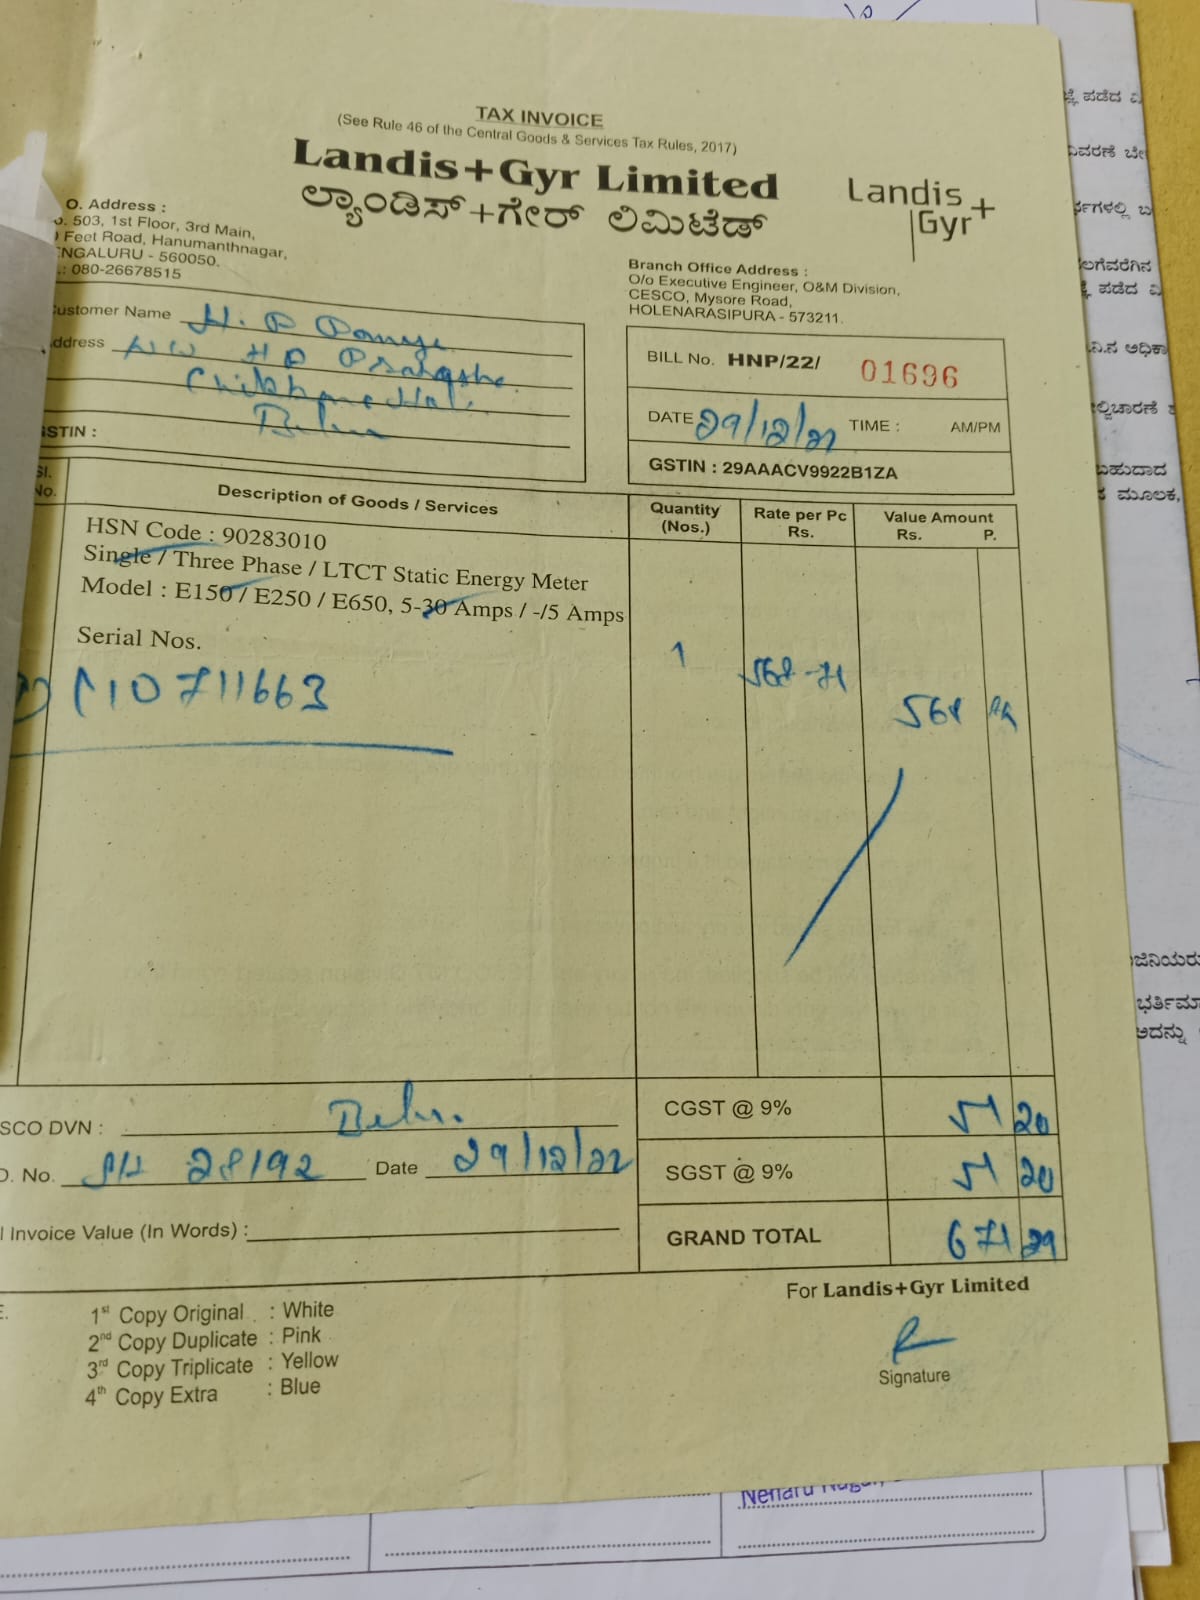 TAX INVOICE
(See Rule 46 of the Central Goods & Services Tax Rules, 2017)
Landis+Gyr Limited
ಲ್ಯಾಂಡಿಸ್+ಗೇರ್ ಲಿಮಿಟೆಡ್
Landis
Gyr+
O. Address :
503, 1st Floor, 3rd Main,
Feet Road, Hanumanthnagar,
ENGALURU - 560050.
: 080-26678515
Branch Office Address :
O/o Executive Engineer, O&M Division,
CESCO, Mysore Road,
HOLENARASIPURA - 573211.
ustomer Name H. P
ddress H D
STIN :
BILL No. HNP/22/ 01696
DATE 29/12/22 TIME : AM/PM
GSTIN : 29AAACV9922B1ZA
Sl. No. Description of Goods / Services Quantity (Nos.) Rate per Pc Rs. Value Amount Rs. P.
HSN Code : 90283010
Single / Three Phase / LTCT Static Energy Meter
Model : E150 / E250 / E650, 5-30 Amps / -/5 Amps
Serial Nos.
10711663
1 568-71 568
CGST @ 9% 51 20
SCO DVN :
SGST @ 9% 51 20
D. No. 28192 Date 29/12/22
l Invoice Value (In Words) :
GRAND TOTAL 671 29
For Landis+Gyr Limited
Signature
1st Copy Original : White
2nd Copy Duplicate : Pink
3rd Copy Triplicate : Yellow
4th Copy Extra : Blue